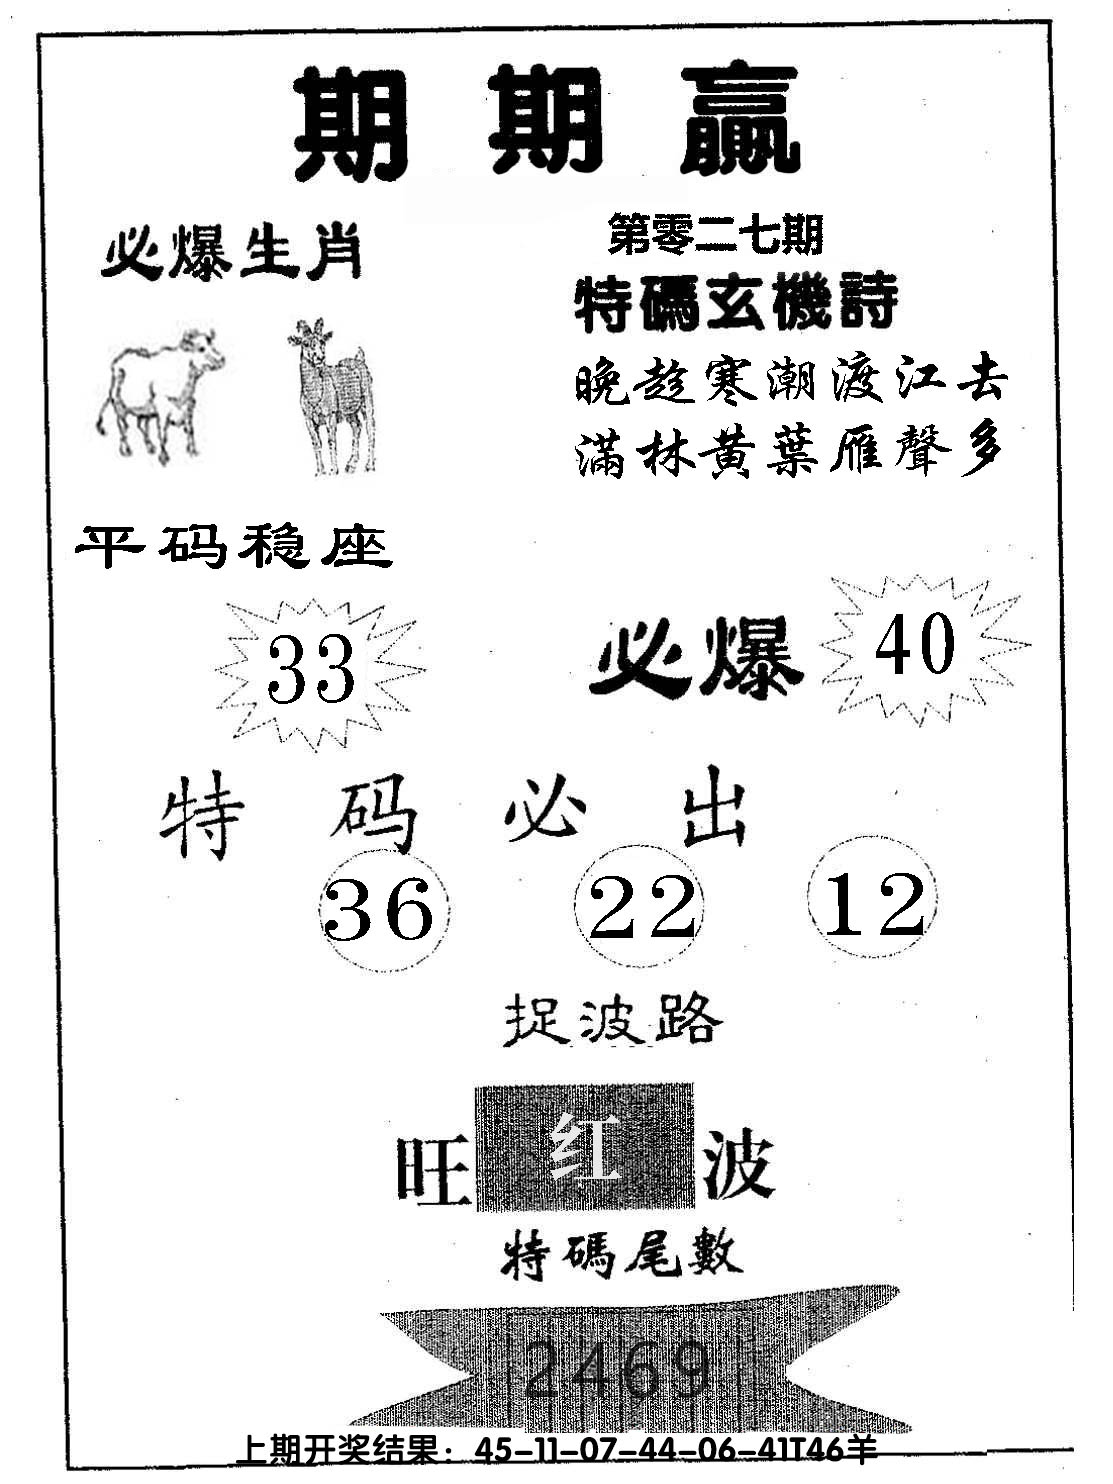 期期赢
必爆生肖
第零二七期
特碼玄機詩
晚趁寒潮渡江去
滿林黄葉雁聲多
平码稳座
33
必爆
40
特码必出
36 22 12
捉波路
旺红波
特碼尾數
2469
上期开奖结果：45-11-07-44-06-41T46羊